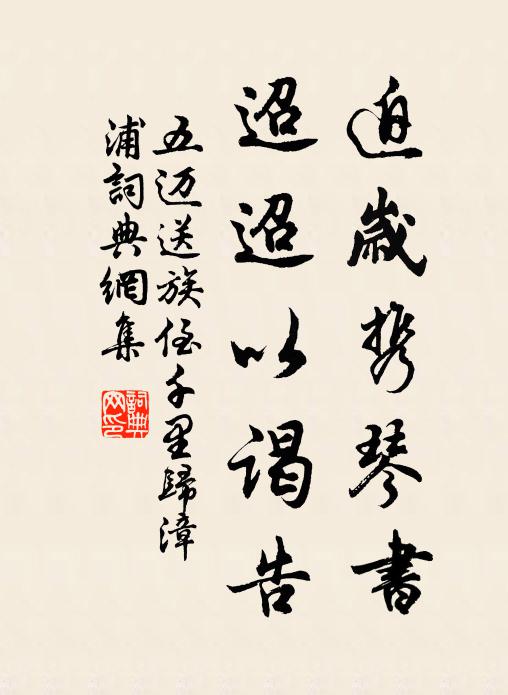 迫歲携琴書
迢迢以謁告
五迈送族侄千里歸漳
浦詞典網集
詞典网印